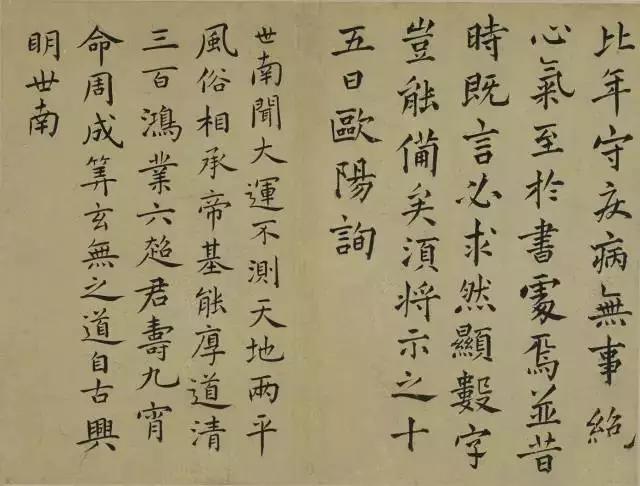 比年守疾病無事絕
心氣至於書處焉並昔
時既言必求然顯數字
豈能備矣須將示之十
五日歐陽詢
世南聞大運不測天地兩平
風俗相承帝基能厚道清
三百鴻業六超君壽九宵
命周成筭玄無之道自古興
明世南